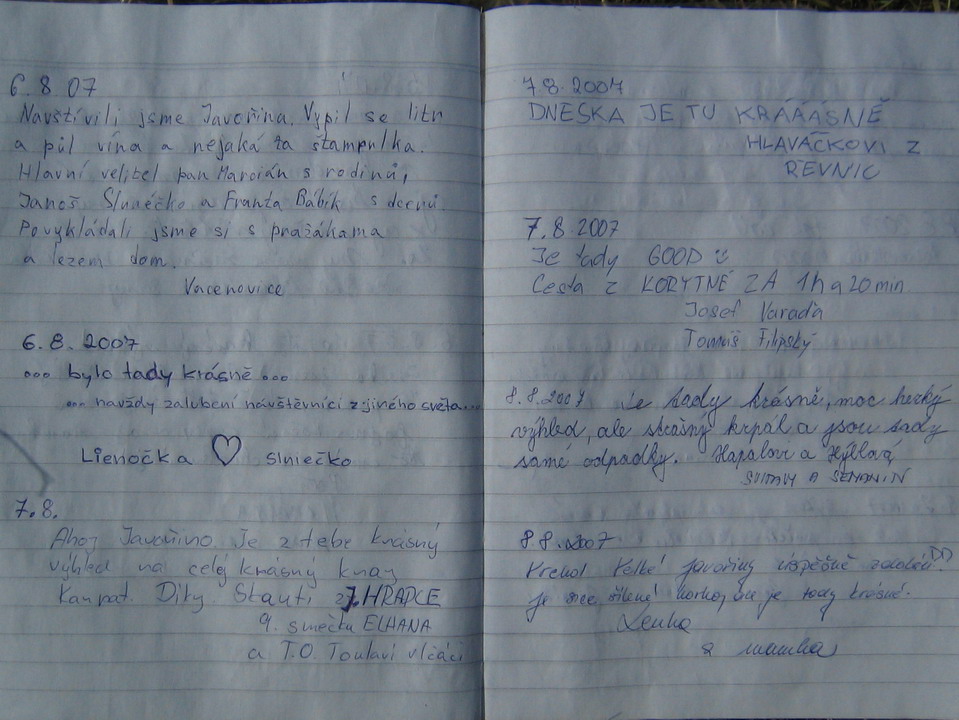 6.8.07
Navštívili jsme Javořina. Vypil se litr
a půl vína a nejaká ta štampulka.
Hlavní velitel pan Marcián s rodinů,
Janoš Slniéčko a Franta Bábík s dcerů.
Povykládali jsme si s pražákama
a lezem dom.
Vacenovice
6.8.2007
... bylo tady krásně...
... navždy zalubení návštěvníci z jiného světa...
Lienočka ♡ slniečko
7.8.
Ahoj Javořino je z tebe krásný
výhled na celej krásný kraj
Karpat. Díky. Skauti z 7. HRADCE
9. smečka ELHANA
a T.O. Toulaví vlčáci
7.8.2007
DNESKA JE TU KRÁÁÁSNĚ
HLAVÁČKOVI Z
ŘEVNIC
7.8.2007
Je tady GOOD :)
Cesta z KORYTNÉ ZA 1h a 20min
Josef Varaďa
Tomáš Filipský
8.8.2007 Je tady krásně, moc hezký
výhled, ale strašný krpál a jsou tady
samé odpadky. Hapalovi a Hýblová
SVITAVY A SEMANÍN
8.8.2007
Velké Javořiny úspěšně :DD
je sice šílené horko, ale je tady krásně.
Lenka
a mamka